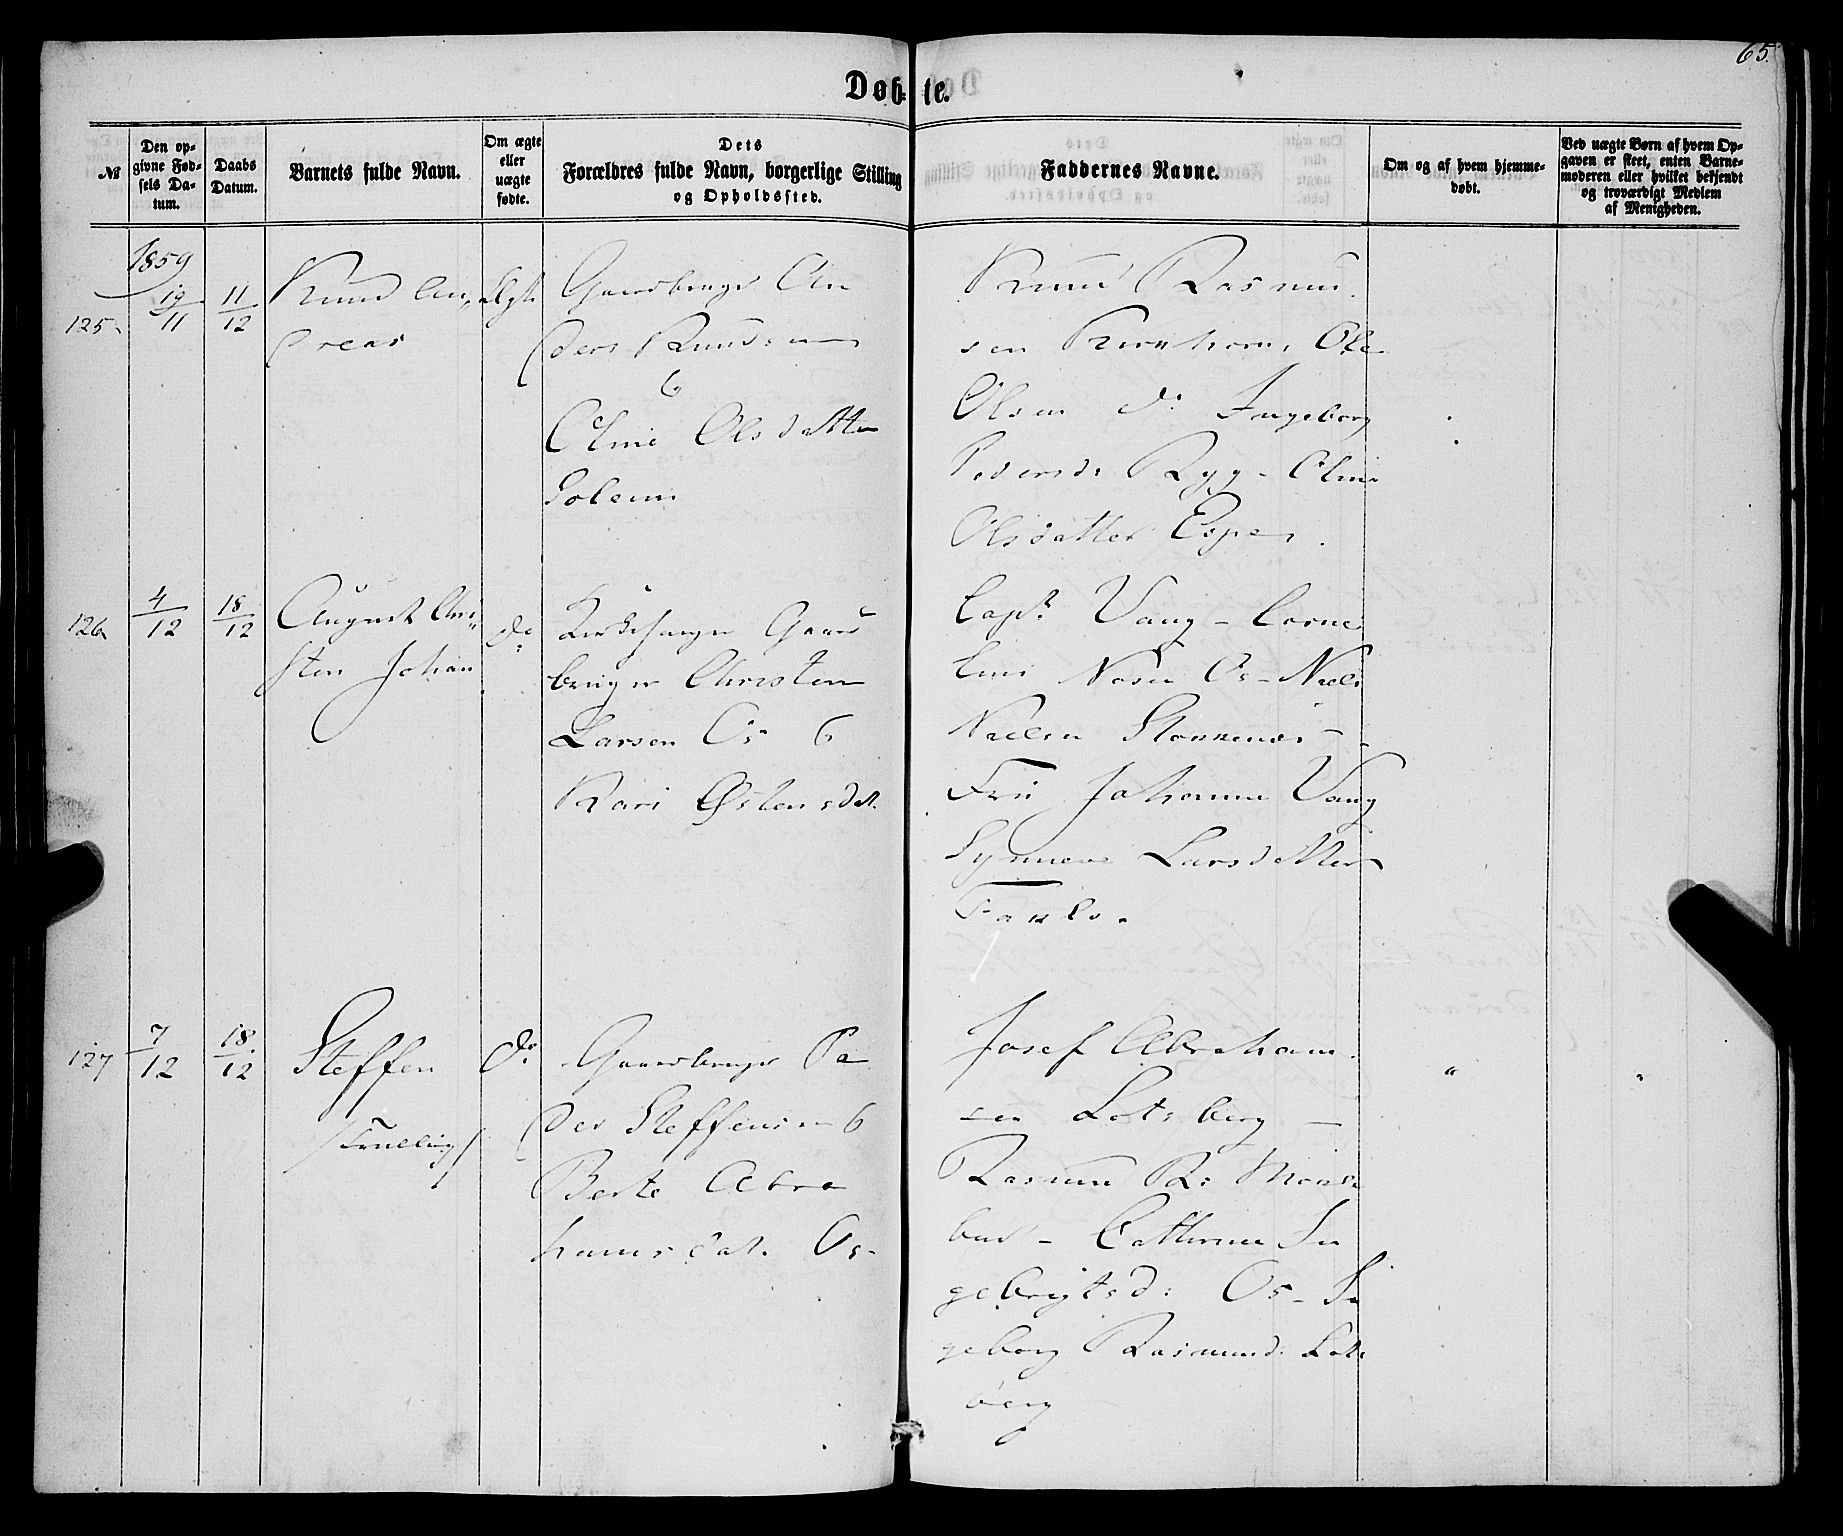 65.
Døbte.
№
Den op-
givne Fød-
sels Da-
tum.
Daabs
Datum.
Barnets fulde Navn.
Om ægte
eller
uægte
fødte.
Dets
Forældres fulde Navn, borgerlige Stilling
og Opholdssted.
Faddernes Navne.
Om og af hvem hjemme-
døbt.
Ved uægte Børn af hvem Op-
gaven er skeet, enten Barne-
moderen eller hvilket bekjendt
og troværdigt Medlem
af Menigheden.
1859
125
19/11
11/12
Knud An„
dreas
Ægt
Gaardbruger An
ders Knudsen
&
Oline Olsdatter
Solem
Knud Rasmus
sen Ole
Olsen do Ingeborg
Pedersd: Ryg - Oline
Olsdatter Espe
126
4/12
18/12
August Chri„
sten Johan
do
Kirkesanger Gaard
bruger Christen
Larsen Os &
Kari Østensdat.
Capt Vang - Corne
lius Os - Niels
Nielsen
Fru Johanne Vang
Synneve Larsdatter
127
7/12
18/12
Steffen
/Trilling/
do
Gaardbruger Pe
der Steffensen &
Berte Abra
hamsdat. Os -
Josef Abraham
sen Lotsberg -
Rasmus Rs
Cathrine In
gebrigtsd: Os - In
geborg Rasmusd: Lots
berg
" "